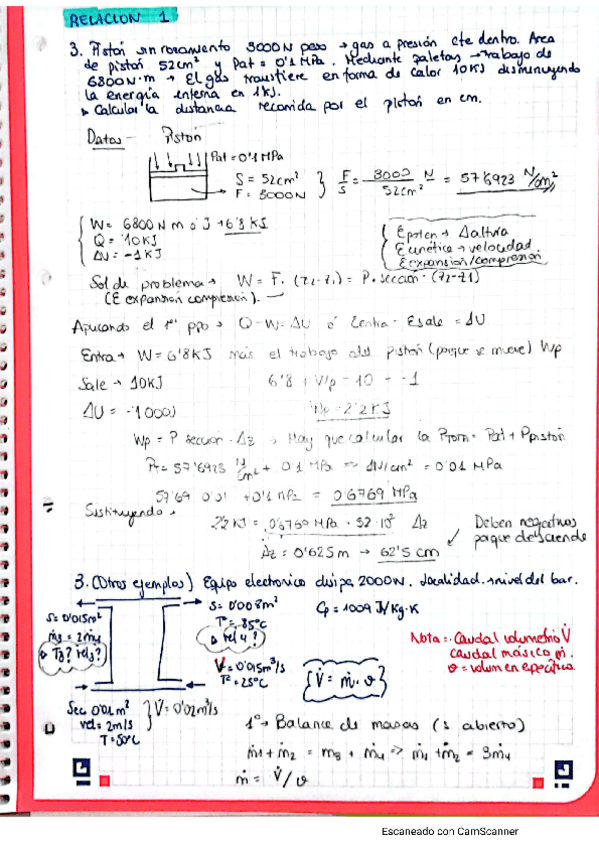 RELACION 1
3. Pistón sin rozamiento 3000N peso → gas a presión cte dentro. Area
de pistón 52cm² y Pat = 0'1 MPa. Mediante paletas → trabajo de
6800N·m → El gas transfiere en forma de calor 10KJ disminuyendo
la energía interna en 1KJ.
▸ Calcular la distancia recorrida por el pistón en cm.
Datos - Pistón
Pat = 0'1 MPa
S = 52cm²
F = 3000N
F/S = 3000 N / 52cm² = 57'6923 N/cm²
W = 6800 N m ó J → 6'8 KJ
Q = 10KJ
ΔU = -1KJ
Epoten → Δaltura
Ecinética → velocidad
Eexpansión/compresión
Sol de problema → W = F. (z2-z1) = P. sección. (z2-z1)
(E expansión compresión).
Aplicando el 1er ppo → Q - W = ΔU ó Eentra - Esale = ΔU
Entra → W = 6'8KJ más el trabajo del pistón (porque se mueve) Wp
Sale → 10KJ
6'8 + Wp - 10 = -1
ΔU = -1000J
Wp = 2'2KJ
Wp = P sección · Δz → Hay que calcular la = Pat + Ppistón
57'6923 N/cm² + 0'1 MPa ⇒ 1N/cm² = 0'01 MPa
57'69 0'01 + 0'1 MPa = 0'6769 MPa
Sustituyendo
2'2 KJ = 0'6769 MPa · 52 · 10³ Δz
Deben negativos
porque desciende
Δz = 0'625m → 62'5 cm
3. (Otros ejemplos) Equipo electronico disipa 2000W. Localidad a nivel del bar.
S = 0'008m²
Cp = 1004 J/Kg·K
S = 0'015m²
T² = 35°C
ṁ3 = 2ṁ4
vel 4?
T3? vel3?
V̇ = 0'015m³/s
T² = 25°C
V̇ = ṁ · ϑ
Nota: Caudal volumetrio V̇
caudal másico ṁ.
ϑ = volumen especifico.
Sec 0'01 m²
vel = 2m/s
T = 50°C
V̇ = 0'02m³/s
1º → Balance de masas (s abierto)
ṁ1 + ṁ2 = ṁ3 + ṁ4 => ṁ1 + ṁ2 = 3ṁ4
ṁ = V̇/ϑ
Escaneado con CamScanner